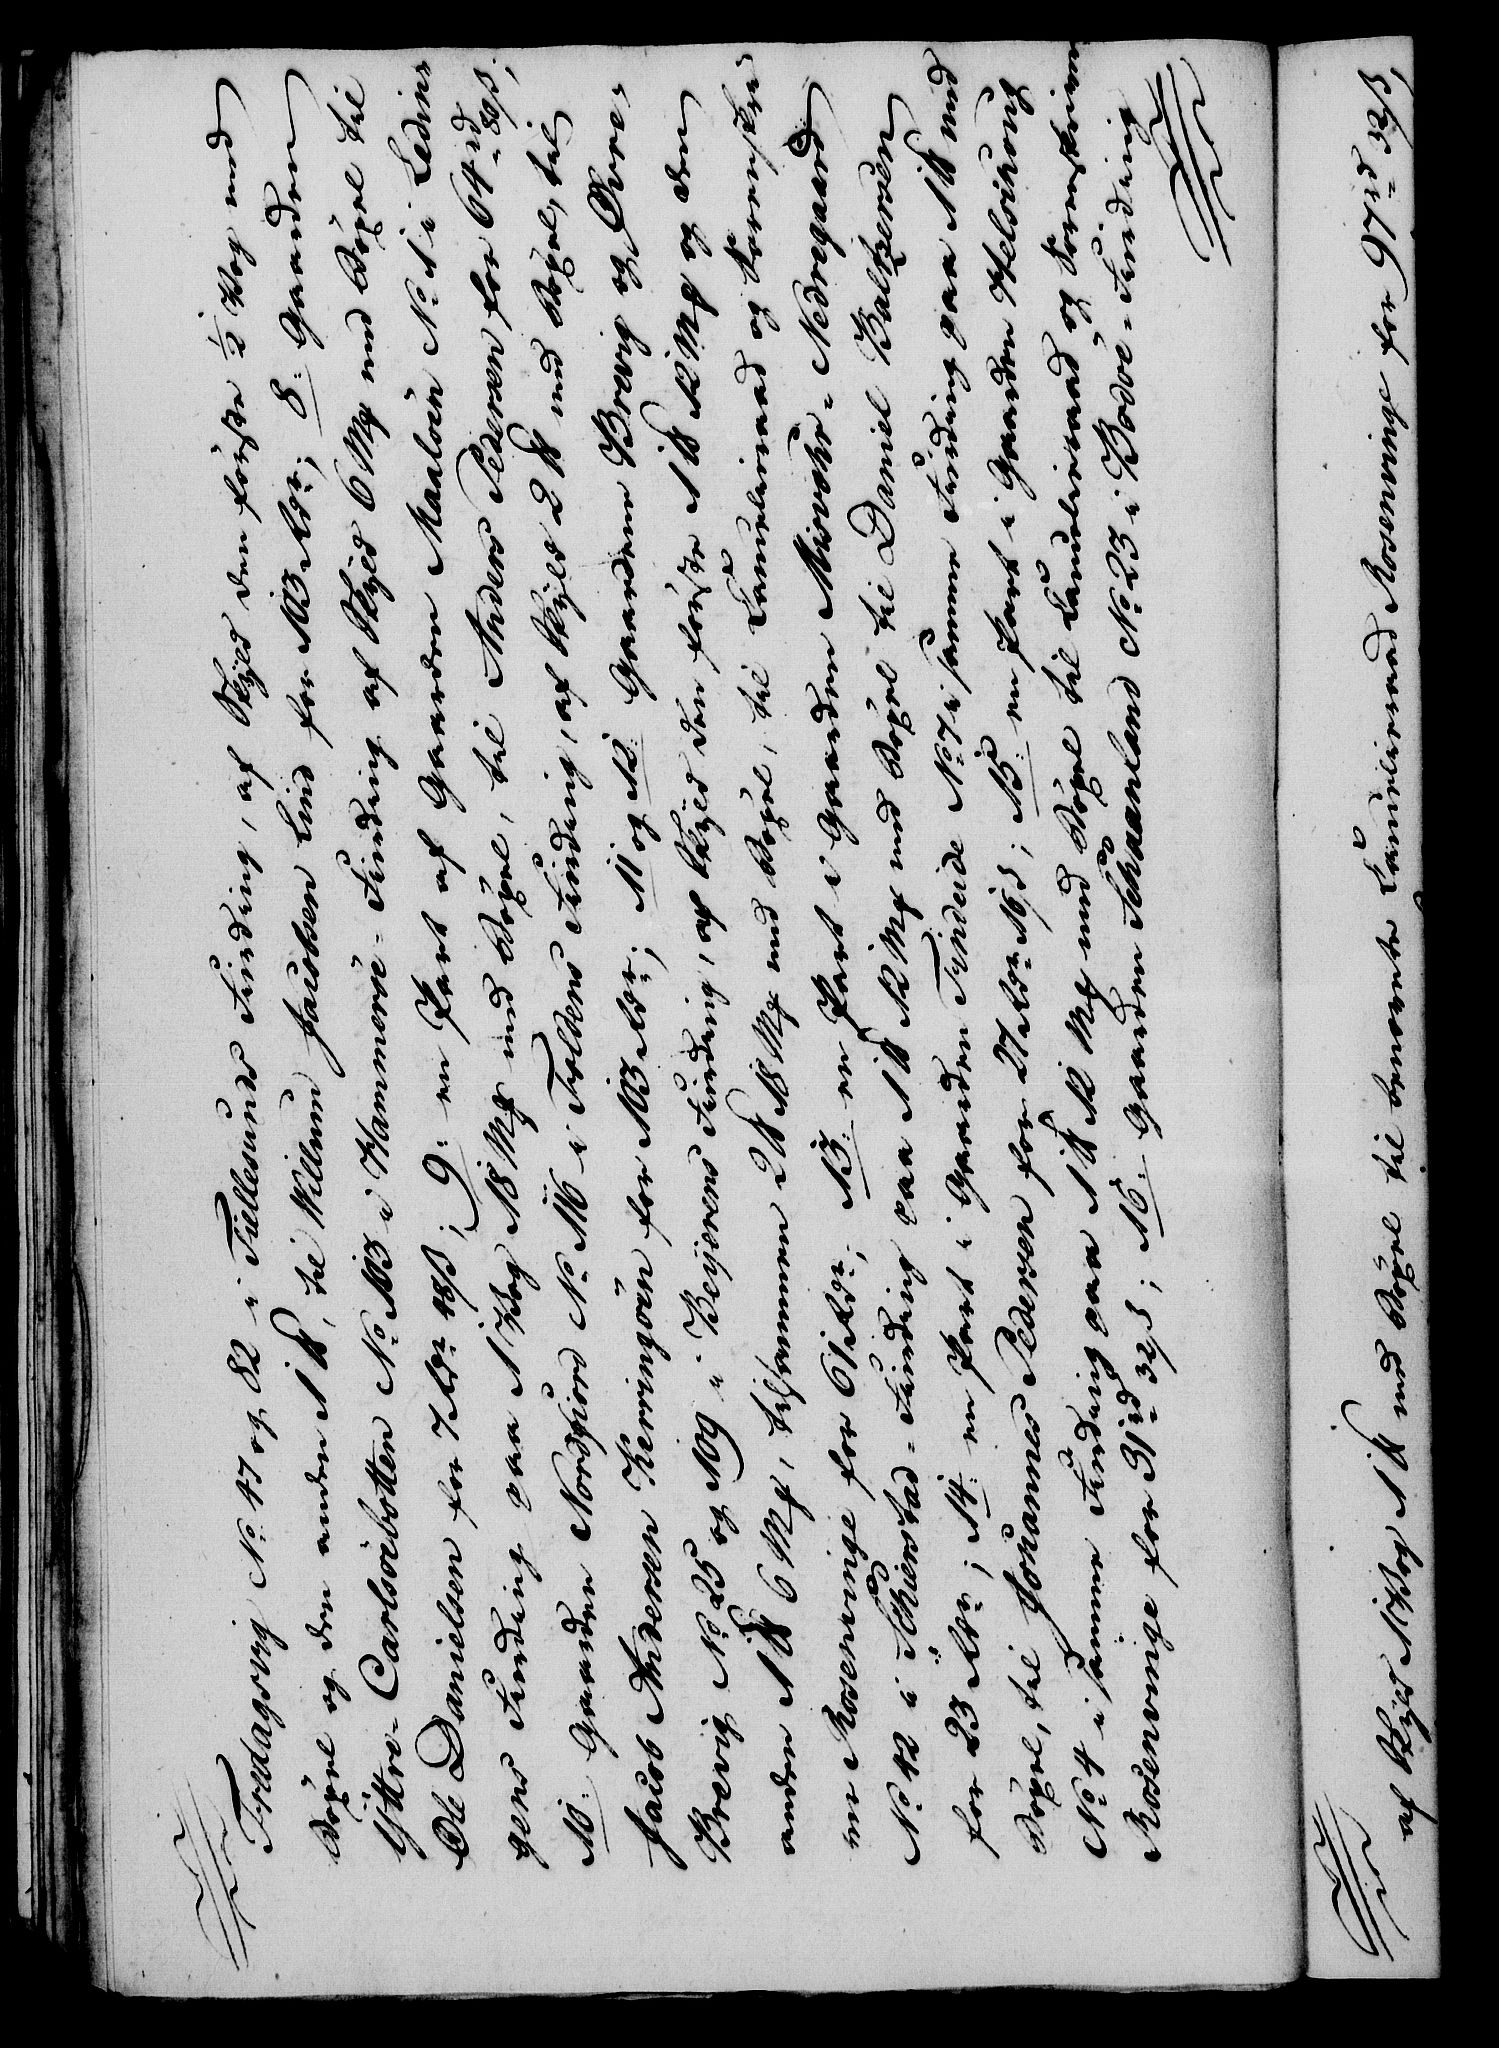 Fredagsvig No. 47 og 82 i Fiellesunds Finding, af Skyld den første ½ Vog med
Bøxel og den anden 1 ℔, til Willum Jacobsen Lind for 113 Rdr; 8: Gaarden
Yttre-Carlsøebotten No. 103 i Hammerøe-Finding af Skyld 6 Mk med Bøxel til
Ole Danielsen for 7 Rdr 48ß; 9: en Part af Gaarden Maaløen No. 1 i Leedin-
gens Finding paa 1 Vog 18 Mk med Bøxel, til Anders Pedersen for 64 rd 80ß;
10: Gaarden Nordfiord No. 116 i Foldens Finding, af Skyld 2 ℔ med Bøxel, til
Jacob Andersen Kerringøen for 103 Rdr; 11 og 12: Gaardene Brevig og Øvre-
Brevig No. 25 og 109 i Beyerens Finding, af Skyld den første 1 ℔ 12 Mk og den
anden 1 ℔ 6 Mk, tilsammen 2 ℔ 18 Mk med Bøxel, til Laurlivaad og Sorenskri-
ver Rosenvinge for 61 Rdr; 13: en Part i Gaarden Misvohr-Nedregaard
No. 42 i Schierstad-Finding paa 1 ℔ 12 Mk med Bøxel til Daniel Baltzersen
for 23 Rdr; 14: en Part i Gaarden Tyndeide No. 7 i samme Finding paa 1 ℔ med
Bøxel, til Johannes Pedersen for 27 Rdr 16ß; 15: en Part i Gaarden Helsihoug
No. 4 i samme Finding paa 1 ℔ 12 Mk med Bøxel til Laurlivaad og Sorenskriver
Rosenvinge for 31 rd 32ß; 16: Gaarden Schaanland No. 23 i Bodøe-Finding
af Skyld 1 Vog 1 ℔ med Bøxel til benævnte Laurlivaad Rosenvinge for 97 rd 32ß,